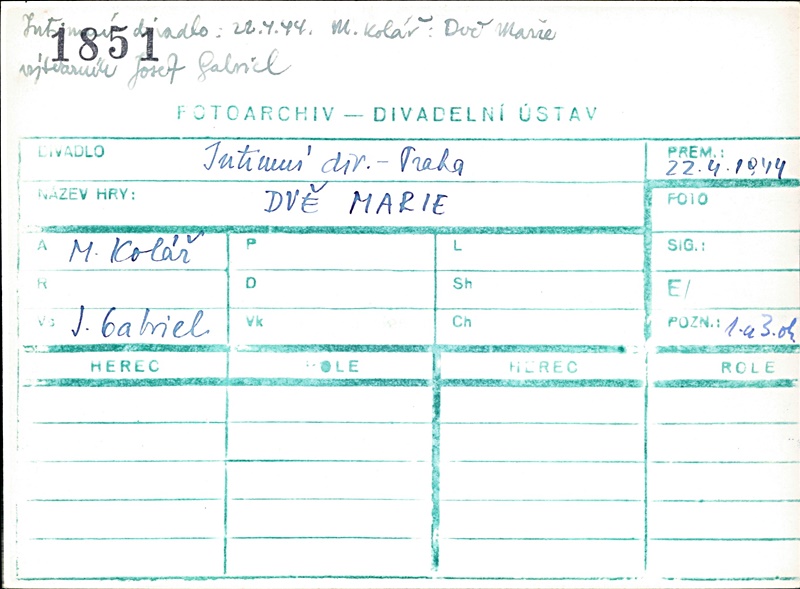 Intimní divadlo: 22.4.44. M. Kolář: Dvě Marie
1851
výtvarník Josef Gabriel
FOTOARCHIV — DIVADELNÍ ÚSTAV
DIVADLO Intimní div. - Praha PREM.: 22.4.1944
NÁZEV HRY: DVĚ MARIE FOTO
A M. Kolář P L SIG.:
R D Sh E/
Vs J. Gabriel Vk Ch POZN.: 1. a 3. ob
HEREC ROLE HEREC ROLE